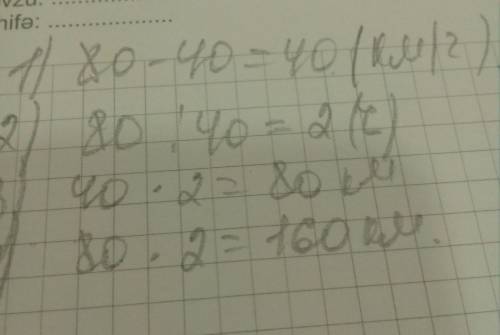 vzu: ....................
hifə: ....................
1) 80-40=40 (км/г)
2) 80:40=2(г)
) 40·2=80 км
) 80·2=160 км.